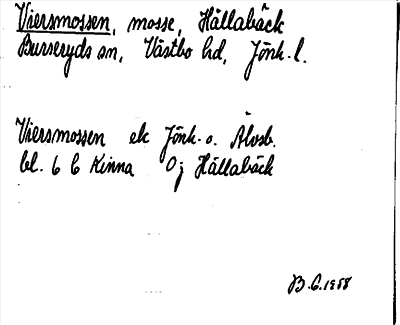 Viersmossen, mosse, Hällabäck
Burseryds sn, Västbo hd, Jönk. l.
Viersmossen ek Jönk. o. Älvsb.
bl. 6 C Kinna Oj Hällabäck
B. G. 1958